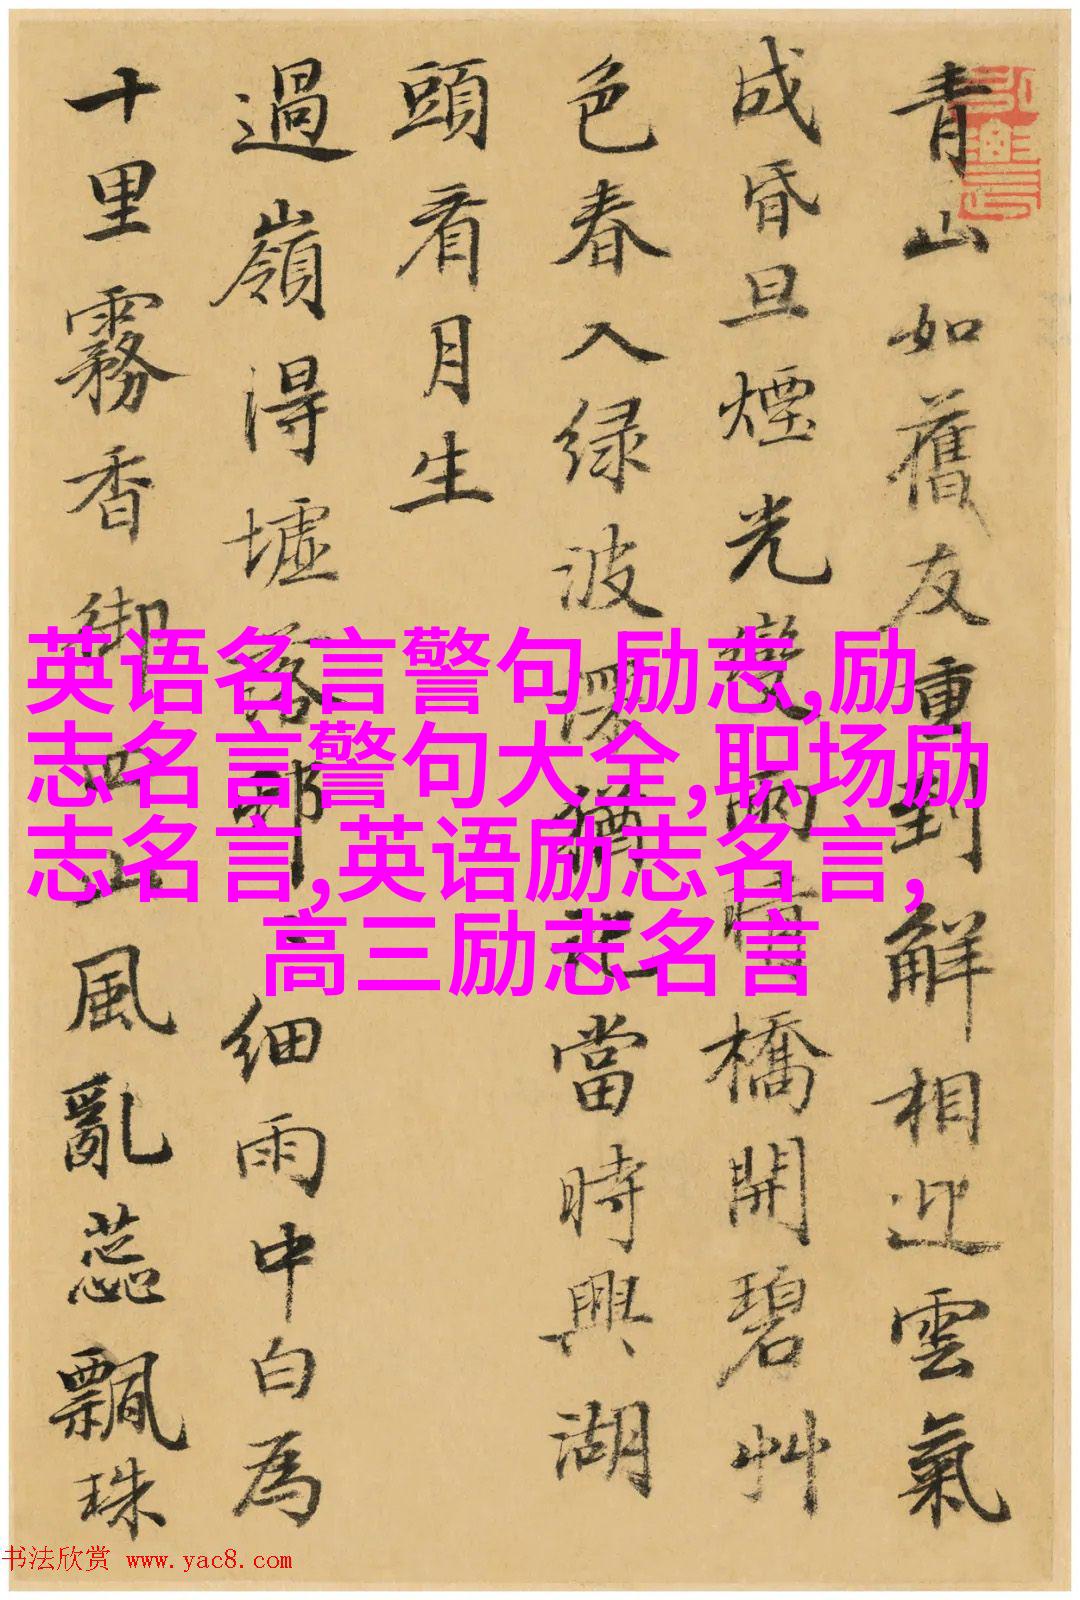 青山如舊友重對解相迎雲氣
成昏旦煙光變雨晴橋開碧艸
色春入绿波猶記當時興湖
頭看月生
過嶺得墟落邨細雨中白為
十里霧香御四山風亂蕊飄珠
英语名言警句 励志,励
志名言警句大全,职场励
志名言,英语励志名言,
高三励志名言
书法欣赏 www.yac8.com